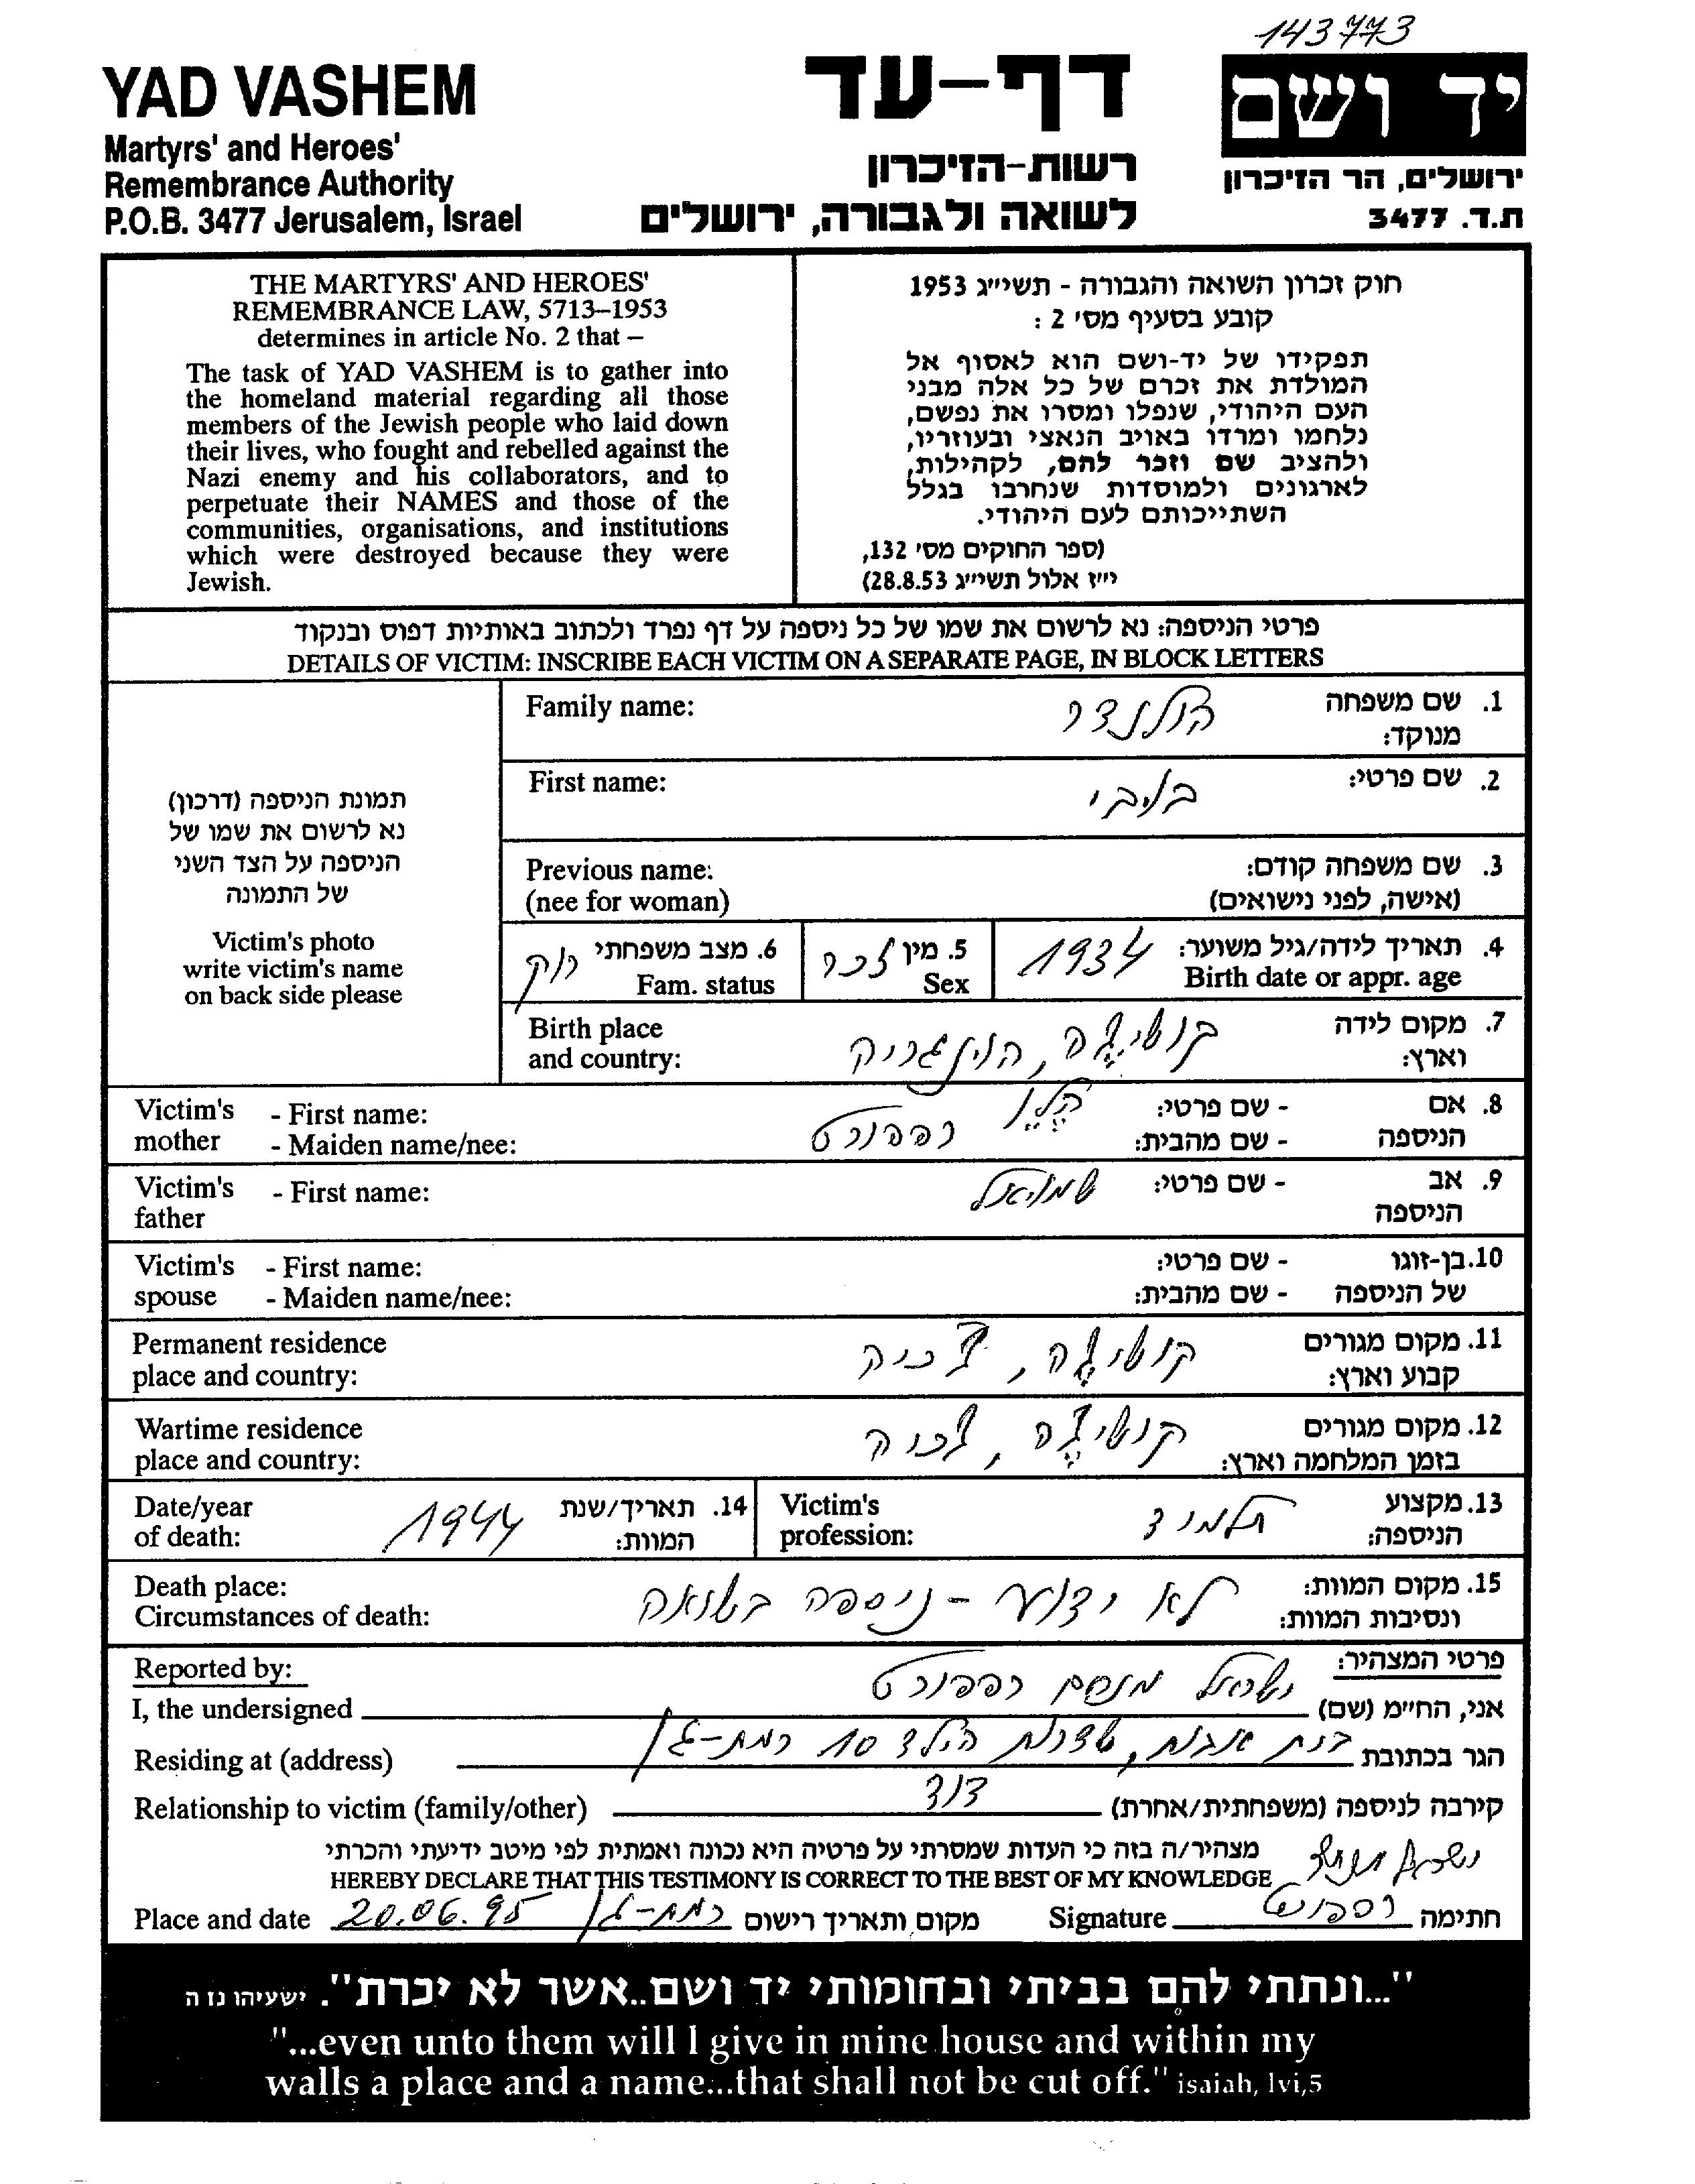 143773
YAD VASHEM
Martyrs' and Heroes'
Remembrance Authority
P.O.B. 3477 Jerusalem, Israel
דף-עד
רשות-הזיכרון
לשואה ולגבורה, ירושלים
יד ושם
ירושלים, הר הזיכרון
ת.ד. 3477
THE MARTYRS' AND HEROES'
REMEMBRANCE LAW, 5713–1953
determines in article No. 2 that –
The task of YAD VASHEM is to gather into
the homeland material regarding all those
members of the Jewish people who laid down
their lives, who fought and rebelled against the
Nazi enemy and his collaborators, and to
perpetuate their NAMES and those of the
communities, organisations, and institutions
which were destroyed because they were
Jewish.
חוק זכרון השואה והגבורה - תשי״ג 1953
קובע בסעיף מס׳ 2 :
תפקידו של יד-ושם הוא לאסוף אל
המולדת את זכרם של כל אלה מבני
העם היהודי, שנפלו ומסרו את נפשם,
נלחמו ומרדו באויב הנאצי ובעוזריו,
ולהציב שם וזכר להם, לקהילות,
לארגונים ולמוסדות שנחרבו בגלל
השתייכותם לעם היהודי.
(ספר החוקים מס׳ 132,
י״ז אלול תשי״ג 28.8.53)
פרטי הניספה: נא לרשום את שמו של כל ניספה על דף נפרד ולכתוב באותיות דפוס ובנקוד
DETAILS OF VICTIM: INSCRIBE EACH VICTIM ON A SEPARATE PAGE, IN BLOCK LETTERS
תמונת הניספה (דרכון)
נא לרשום את שמו של
הניספה על הצד השני
של התמונה
Victim's photo
write victim's name
on back side please
1. שם משפחה הולנדר Family name:
מנוקד:
2. שם פרטי: בובי First name:
3. שם משפחה קודם: Previous name:
(אישה, לפני נישואים) (nee for woman)
4. תאריך לידה/גיל משוער: 1934 5. מין זכר 6. מצב משפחתי רווק
Birth date or appr. age Sex Fam. status
7. מקום לידה Birth place
וארץ: הונגריה and country:
8. אם - שם פרטי: הלן Victim's - First name:
הניספה - שם מהבית: רפפורט mother - Maiden name/nee:
9. אב - שם פרטי: שמואל Victim's - First name:
הניספה father
10. בן-זוגו - שם פרטי: Victim's - First name:
של הניספה - שם מהבית: spouse - Maiden name/nee:
11. מקום מגורים Permanent residence
קבוע וארץ: קושיצה, צ'כיה place and country:
12. מקום מגורים Wartime residence
בזמן המלחמה וארץ: קושיצה, צ'כיה place and country:
13. מקצוע תלמיד Victim's 14. תאריך/שנת 1944 Date/year
הניספה: profession: המוות: of death:
15. מקום המוות: לא ידוע - ניספה בשואה Death place:
ונסיבות המוות: Circumstances of death:
פרטי המצהיר: Reported by:
אני, החי״מ (שם) ישראל מנחם רפפורט I, the undersigned
הגר בכתובת בית אבות, שדרות הילד 10 רמת-גן Residing at (address)
קירבה לניספה (משפחתית/אחרת) דוד Relationship to victim (family/other)
מצהיר/ה בזה כי העדות שמסרתי על פרטיה היא נכונה ואמתית לפי מיטב ידיעתי והכרתי
HEREBY DECLARE THAT THIS TESTIMONY IS CORRECT TO THE BEST OF MY KNOWLEDGE
ישראל מנחם
חתימה רפפורט Signature מקום ותאריך רישום רמת-גן 20.06.95 Place and date
"...ונתתי להם בביתי ובחומותי יד ושם..אשר לא יכרת". ישעיהו נז ה
"...even unto them will I give in mine house and within my
walls a place and a name...that shall not be cut off." isaiah, lvi,5